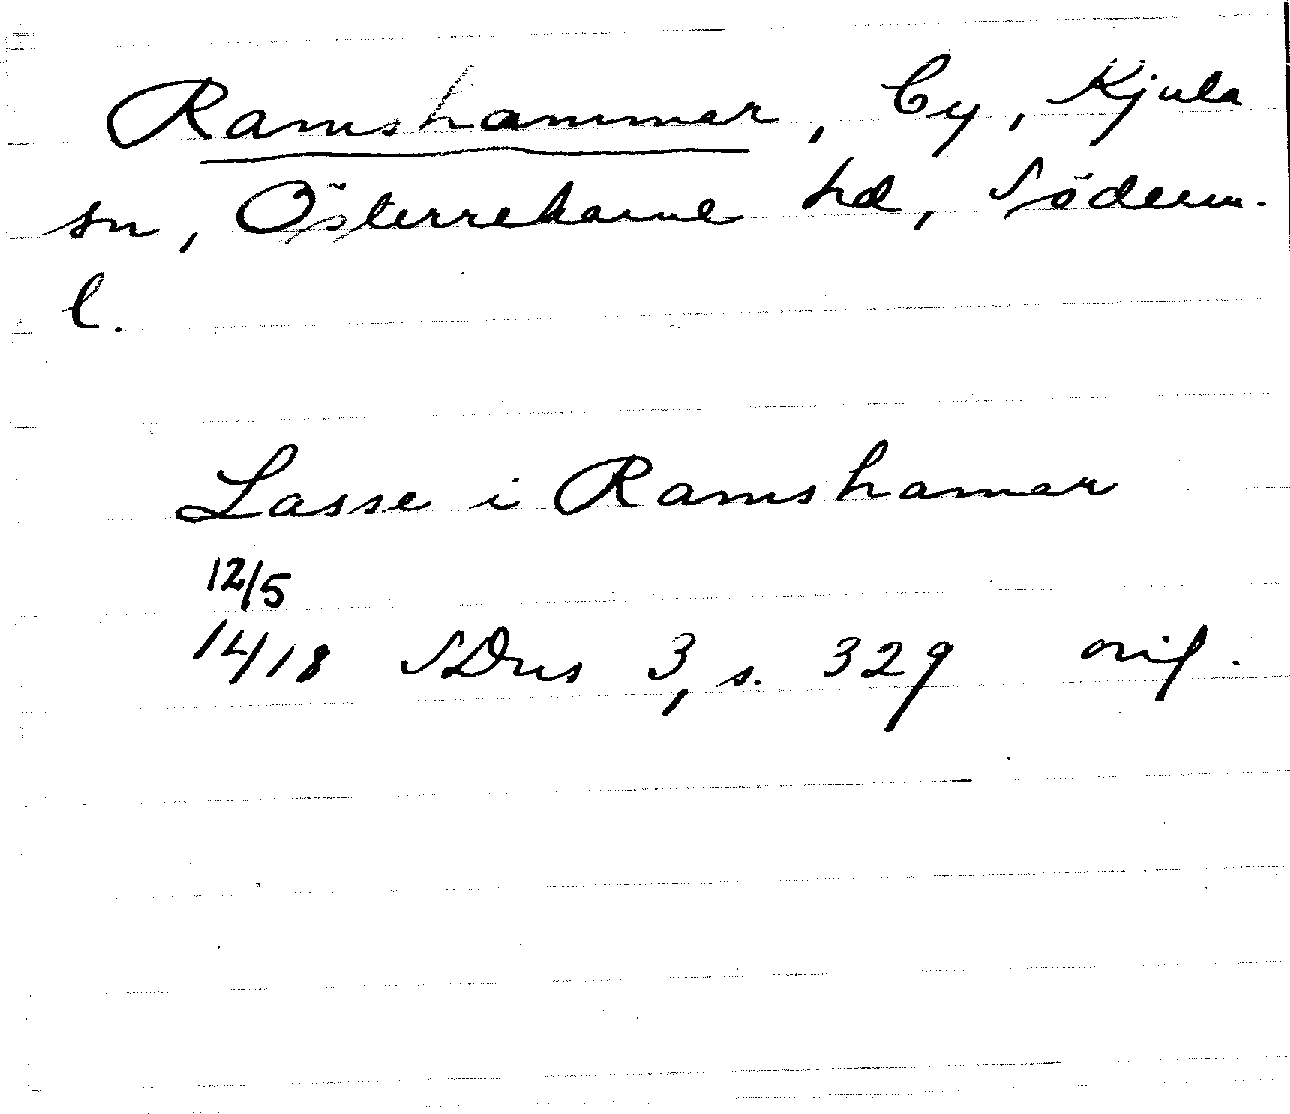 Ramshammar, by, Kjula
sn, Österrekarne hd, Söderm.
l.
Lasse i Ramshamar
12/5
1418 SDns 3, s. 329 orig.